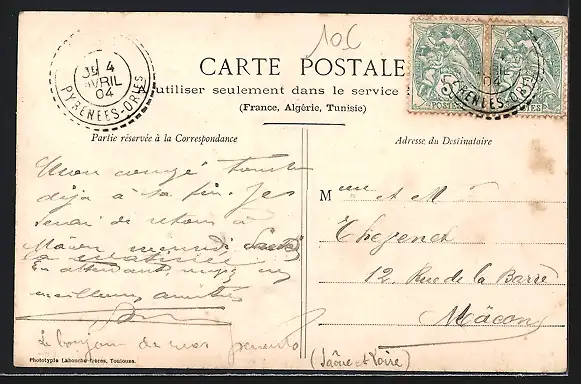 10€
CARTE POSTALE
utiliser seulement dans le service
(France, Algérie, Tunisie)
4
AVRIL
04
PYRENEES-ORIES
5
POSTES
Partie réservée à la Correspondance
Adresse du Destinataire
Mon congé
déjà à sa fin. Je
serai de retour à
Mâcon mercredi
la matinée
En attendant
meilleures amitiés
Le bonjour de mes parents
Mme et M
12, Rue de la Barre
Mâcon
(Saône et Loire)
Phototypie Labouche frères, Toulouse.